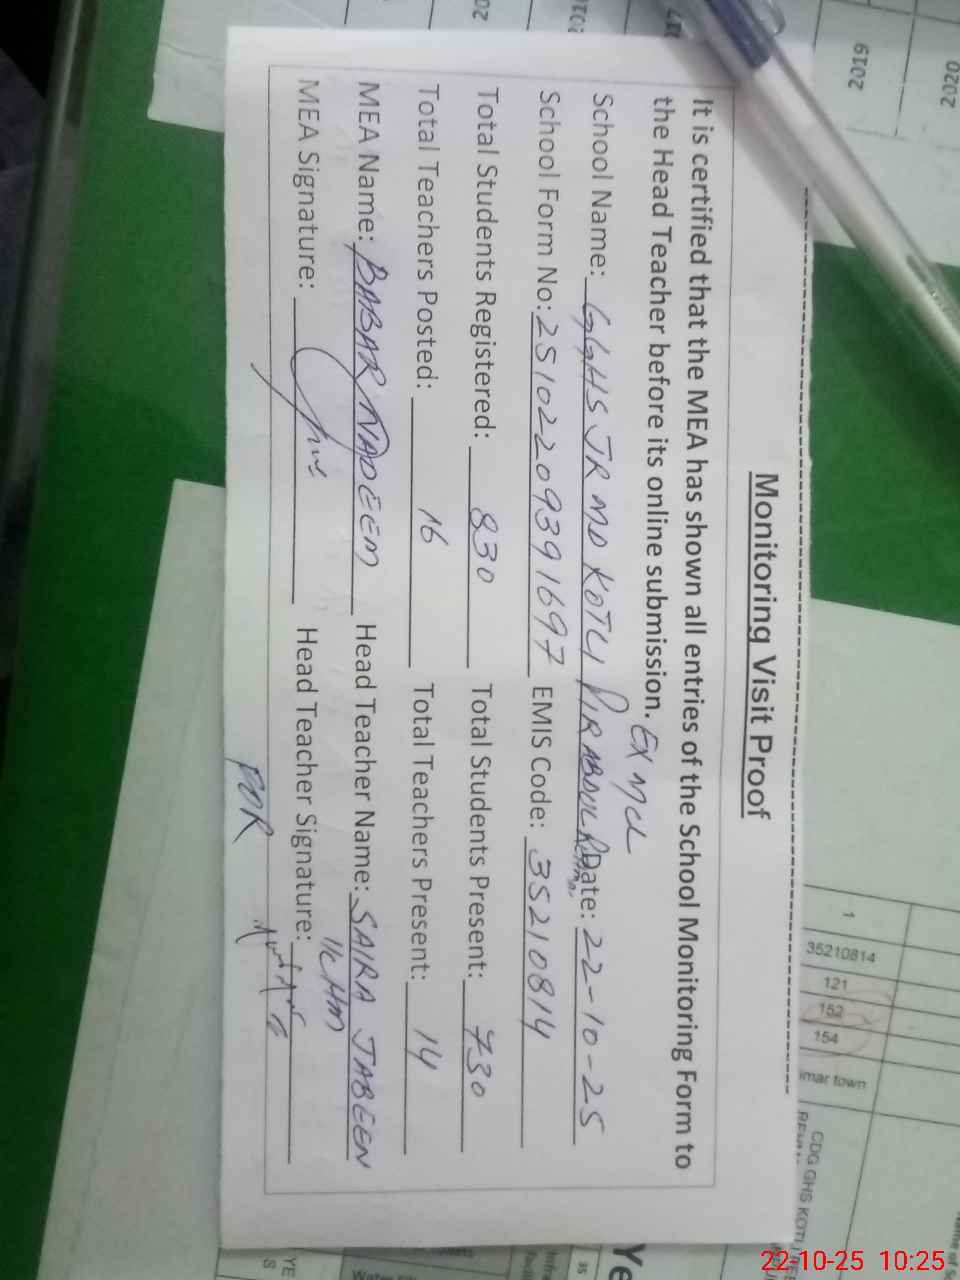 Monitoring Visit Proof
It is certified that the MEA has shown all entries of the School Monitoring Form to
the Head Teacher before its online submission. EX MCL
School Name: GGHS JR MD KOTLI PIR ABDUL Date: 22-10-25
School Form No: 25102209391697 EMIS Code: 35210814
Total Students Registered: 830 Total Students Present: 730
Total Teachers Posted: 16 Total Teachers Present: 14
MEA Name: BABAR NADEEM Head Teacher Name: SAIRA JABEEN
I/C HM
MEA Signature: Head Teacher Signature:
PDR
2019
2020
1
35210814
121
152
154
imar town
CDG GHS KOTLI
Ye
YE
S
22-10-25 10:25